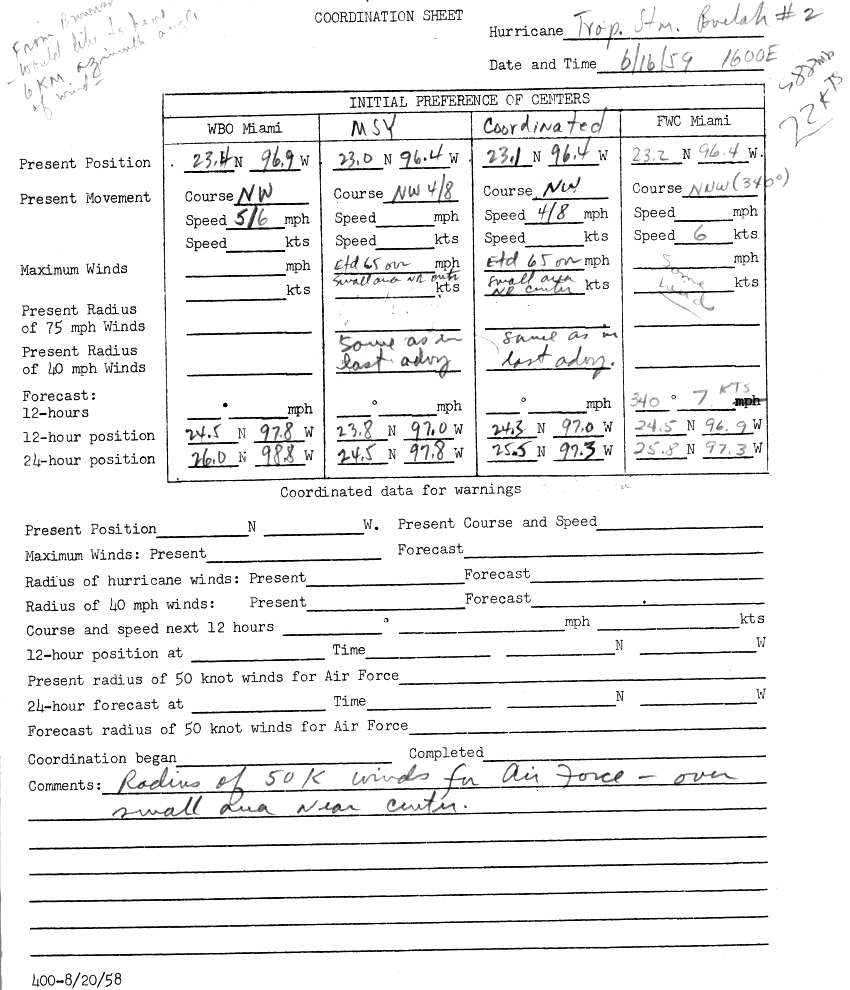 From
would like to have
6 KM.
of wind
COORDINATION SHEET
Hurricane Trop. Stm. Beulah # 2
Date and Time 6/16/59 1600E
22 KTS
INITIAL PREFERENCE OF CENTERS
WBO Miami MSY Coordinated FWC Miami
Present Position 23.4 N 96.9 W 23.0 N 96.4 W 23.1 N 96.4 W 23.2 N 96.4 W.
Present Movement Course NW Course NW 4/8 Course NW Course NNW (340°)
Speed 5/6 mph Speed mph Speed 4/8 mph Speed mph
Speed kts Speed kts Speed kts Speed 6 kts
Maximum Winds mph Etd 65 over mph Etd 65 over mph Same mph
kts small area NR center kts small area NR center kts kts
Present Radius
of 75 mph Winds
Present Radius Same as in Same as in
of 40 mph Winds last advy last advy.
Forecast:
12-hours ° mph ° mph ° mph 340 ° 7 KTS mph
12-hour position 24.5 N 97.8 W 23.8 N 97.0 W 24.3 N 97.0 W 24.5 N 96.9 W
24-hour position 26.0 N 98.8 W 24.5 N 97.8 W 25.5 N 97.3 W 25.8 N 97.3 W
Coordinated data for warnings
Present Position N W. Present Course and Speed
Maximum Winds: Present Forecast
Radius of hurricane winds: Present Forecast
Radius of 40 mph winds: Present Forecast
Course and speed next 12 hours ° mph kts
12-hour position at Time N W
Present radius of 50 knot winds for Air Force
24-hour forecast at Time N W
Forecast radius of 50 knot winds for Air Force
Coordination began Completed
Comments: Radius of 50 K winds for Air Force – over
small area near center.
400-8/20/58